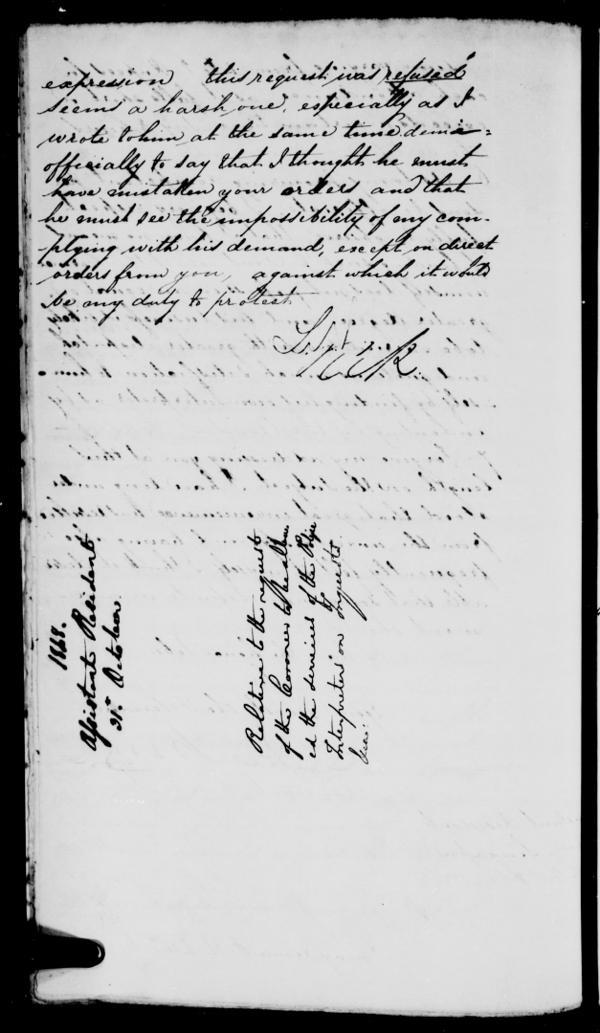 expression "this request was refused"
seems a harsh one, especially as I
wrote to him at the same time demi=
officially to say that I thought he must
have mistaken your orders and that
he must see the impossibility of my com-
plying with his demand, except on direct
orders from you, against which it would
be my duty to protest.
1868.
Assistant Resident
31st October
Relative to the request
of the Coroner to be allow
ed the services of the
Interpreters on Inquests